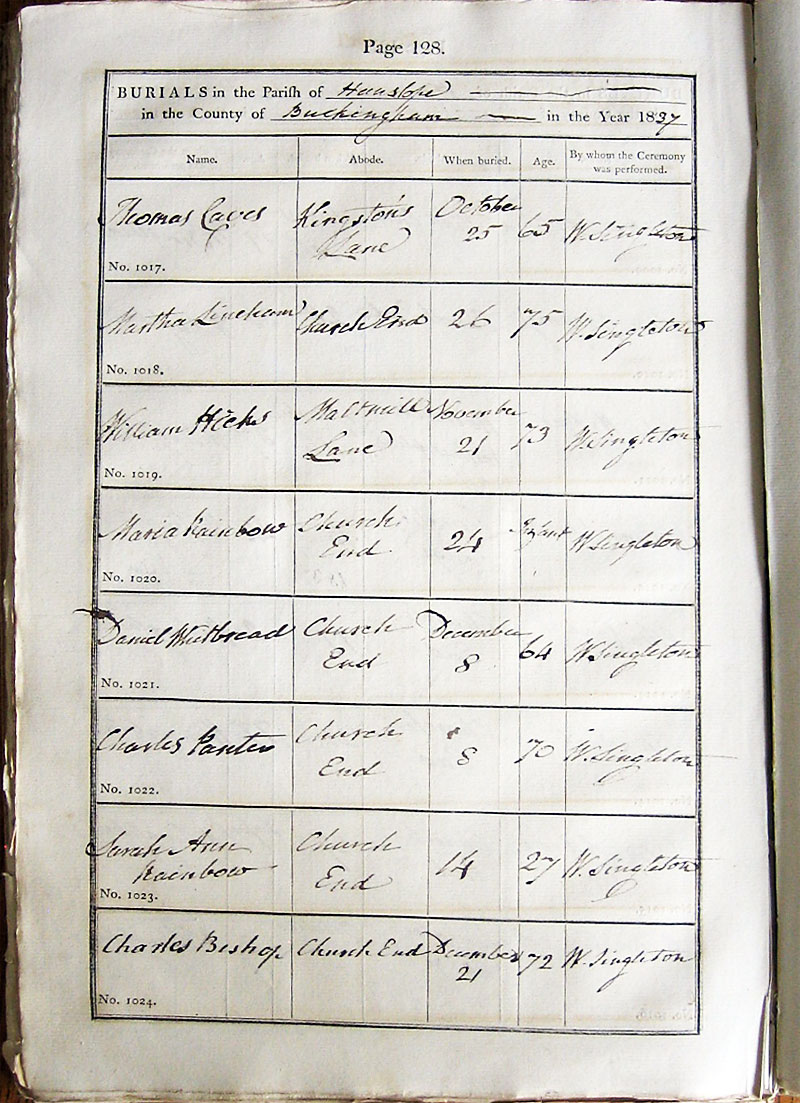 Page 128.
BURIALS in the Parish of Hanslope
in the County of Buckingham in the Year 1837
Name. Abode. When buried. Age. By whom the Ceremony was performed.
Thomas Caves Kingston's Lane October 25 65 W. Singleton
No. 1017.
Martha Lineham Church End 26 75 W. Singleton
No. 1018.
William Hicks Maltmill Lane November 21 73 W. Singleton
No. 1019.
Maria Rainbow Church End 24 Infant W. Singleton
No. 1020.
Daniel Whitbread Church End December 8 64 W. Singleton
No. 1021.
Charles Panter Church End 8 70 W. Singleton
No. 1022.
Sarah Ann Rainbow Church End 14 27 W. Singleton
No. 1023.
Charles Bishop Church End December 21 72 W. Singleton
No. 1024.